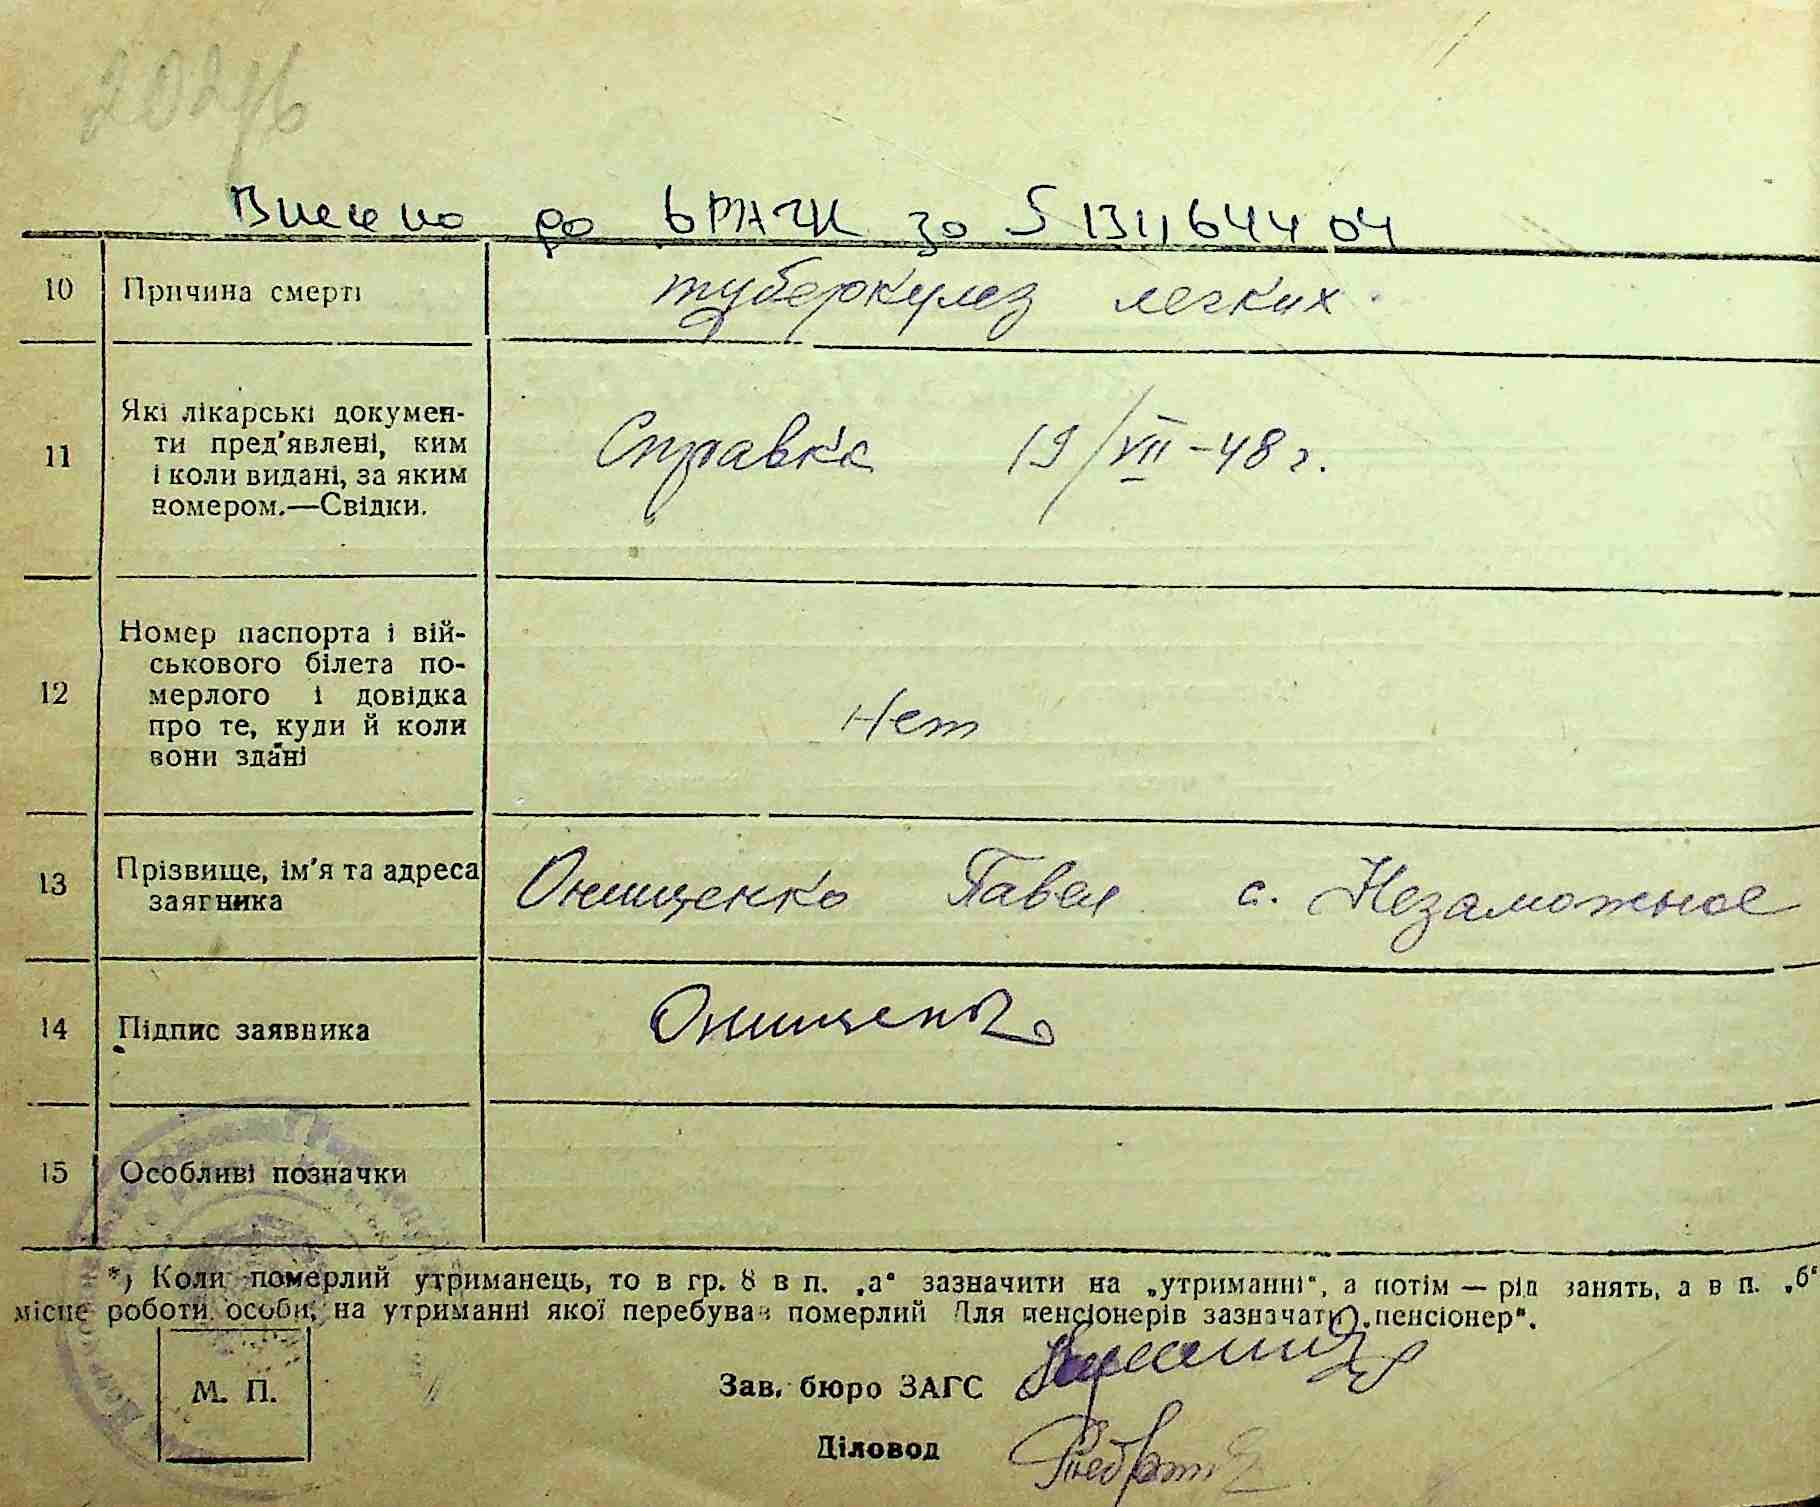 Внесено до ДРАЦС за 5131164404
10 Причина смерті туберкулез легких.
11 Які лікарські докумен-
ти пред'явлені, ким
і коли видані, за яким
номером.—Свідки.
Справка 19/VII-48 г.
12 Номер паспорта і вій-
ськового білета по-
мерлого і довідка
про те, куди й коли
вони здані
Нет
13 Прізвище, ім'я та адреса
заявника
Онищенко Павел с. Незаможное
14 Підпис заявника Онищенко
15 Особливі позначки
*) Коли померлий утриманець, то в гр. 8 в п. „а“ зазначити на „утриманні“, а потім — рід занять, а в п. „б“
місце роботи особи, на утриманні якої перебував померлий Для пенсіонерів зазначати „пенсіонер“.
М. П.
Зав. бюро ЗАГС
Діловод